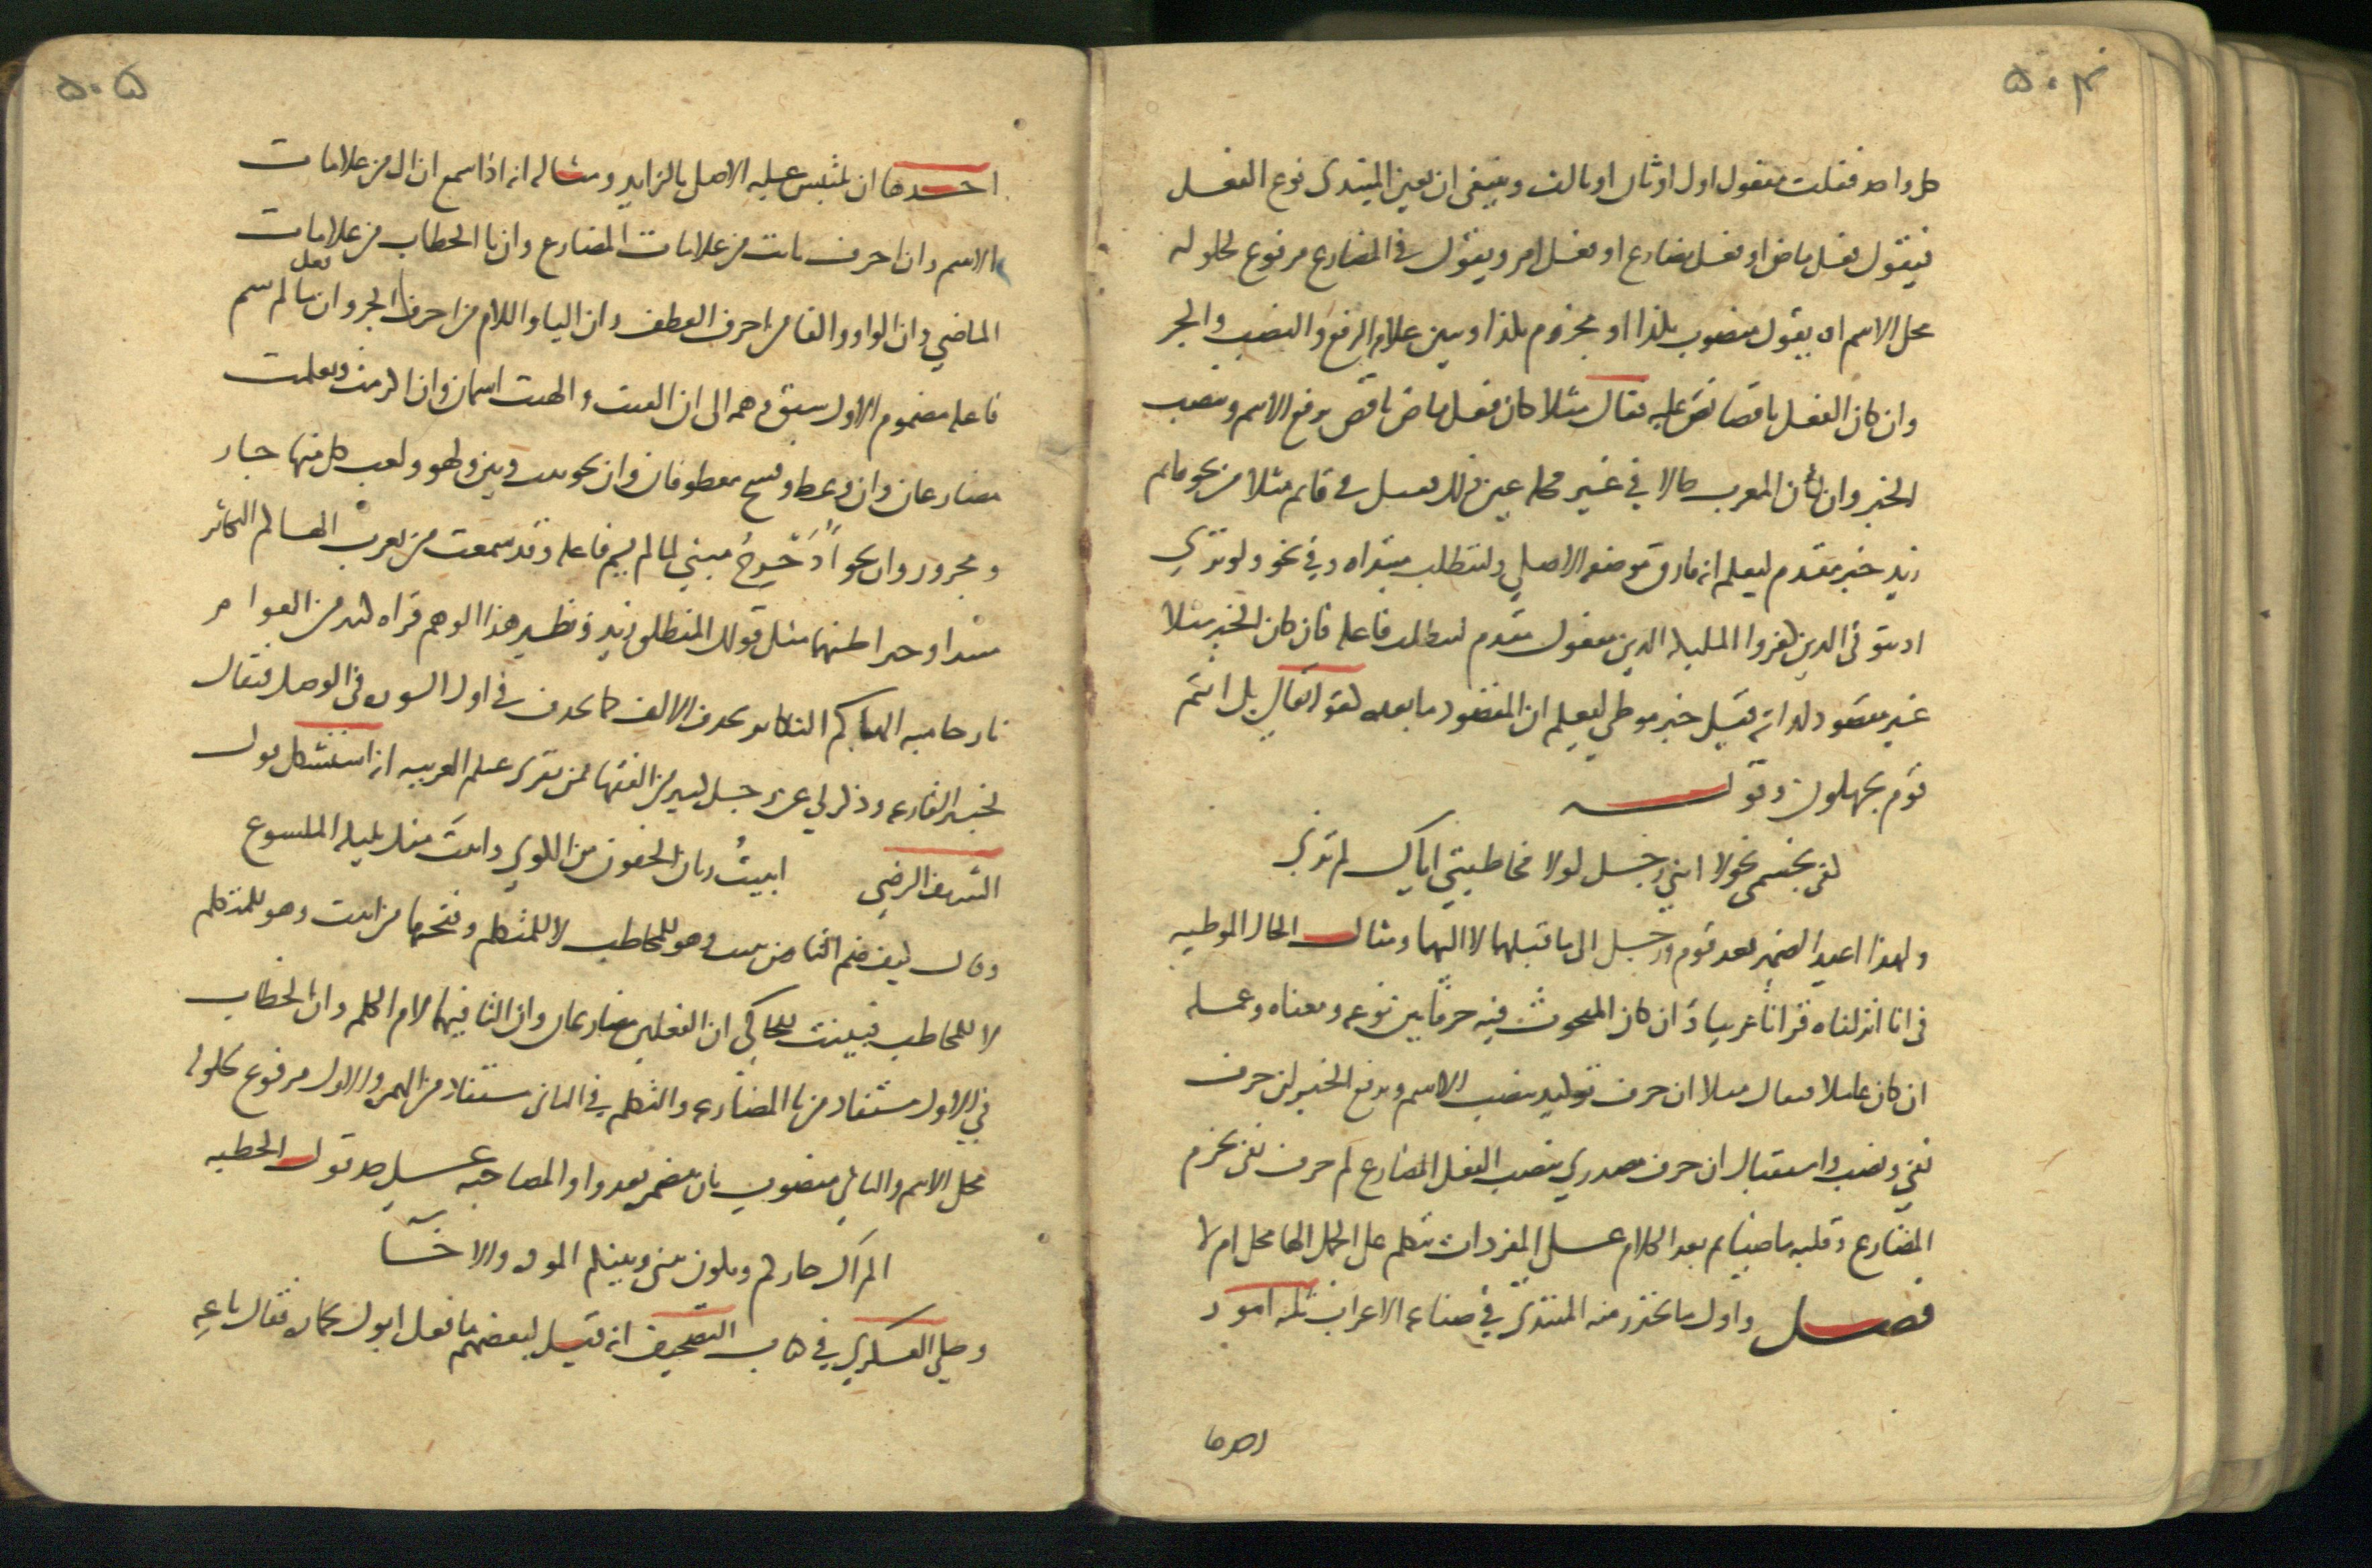 ٥٠٤
كل واحد فقلت مفعول اول او ثان او ثالث وينبغي ان يعين المبتدي نوع الفعل
فيقول فعل ماض او فعل مضارع او فعل امر ويقول في المضارع مرفوع لحلوله
محل الاسم او يقول منصوب بكذا او مجزوم بكذا ويبين علامه الرفع والنصب والجر
وان كان الفعل ناقصا نص عليه فقال مثلا كان فعل ماض ناقص يرفع الاسم وينصب
الخبر وان كان المعرب حالا في غير محله عين ذلك فقيل في قايم مثلا من نحو قايم
زيد خبر مقدم ليعلم انه فارق موضعه الاصلي وليتطلب مبتداه وفي نحو ولو تري
اذ يتوفي الذين كفروا الملئكه الذين مفعول مقدم ليتطلب فاعله فان كان الخبر مثلا
غير مقصود لذاته قيل خبر موطي ليعلم ان المقصود ما بعده كقوله تعالي بل انتم
قوم تجهلون وقوله
كفي بجسمي نحولا انني رجل لولا مخاطبتي اياك لم ترني
ولهذا اعيد الضمير بعد قوم ورجل الي ما قبلهما لا اليهما ومثال الحال الموطيه
في انا انزلناه قرانا عربيا وان كان المبحوث فيه حرفا بين نوعه ومعناه وعمله
ان كان عاملا فقال مثلا ان حرف توكيد ينصب الاسم ويرفع الخبر لن حرف
نفي ونصب واستقبال ان حرف مصدري ينصب الفعل المضارع لم حرف نفي يجزم
المضارع وقلبه ماضيا ثم بعد الكلام علي المفردات يتكلم علي الجمل الها محل ام لا
فصل واول ما يحترز منه المبتدي في صناعه الاعراب ثلثه امور
احدها
٥٠٥
احدها ان يلتبس عليه الاصل بالزايد ومثاله انه اذا سمع ان ال من علامات
الاسم وان احرف نايت من علامات المضارع وان تا الخطاب من علامات
الماضي وان الواو والفا من احرف العطف وان البا واللام من احرف الجر وان فعل ما لم يسم
فاعله مضموم الاول سبق وهمه الي ان الفيت والهبت اسمان وان اكرمت وتعلمت
مضارعان وان وعظ وفسح معطوفان وان نحو بيت وبين ولهو ولعب كل منها جار
ومجرور وان نحو ادحرج مبني لما لم يسم فاعله وقد سمعت من يعرب الهاكم التكاثر
مبتدا وخبرا فظنهما مثل قولك المنطلق زيد ونظير هذا الوهم قراه كثير من العوام
نار حاميه الهاكم التكاثر بحذف الالف كما تحذف في اول السوره في الوصل فيقال
لخبير القارعه وذكر لي عن رجل كبير من الفقها ممن يقري علم العربيه انه استشكل قول
الشريف الرضي ابيت ريان الجفون من الكري وابيت منك بليله الملسوع
وقال كيف ضم التا من بيت وهو للمخاطب لا للمتكلم وفتحها من ابيت وهو للمتكلم
لا للمخاطب فبينت للحاكي ان الفعلين مضارعان وان التا فيهما لام الكلمه وان الخطاب
في الاول مستفاد من تا المضارعه والتكلم في الثاني مستفاد من الهمزه والاول مرفوع لحلوله
محل الاسم والثاني منصوب بان مضمره بعد واو المصاحبه علي حد قول الحطيه
الم اك جاركم ويكون بيني وبينكم الموده والاخا
وحكي العسكري في كتاب التصحيف انه قيل لبعضهم ما فعل ابوك بحماره فقال باعه